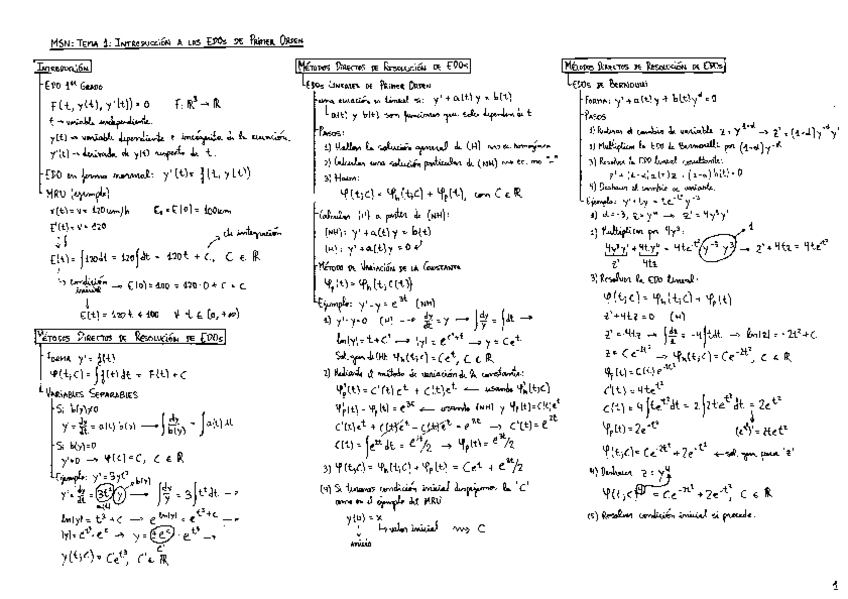 MSN: TEMA 1: INTRODUCCIÓN A LAS EDOs DE PRIMER ORDEN
INTRODUCCIÓN
EDO 1er GRADO
F(t, y(t), y'(t)) = 0 F: R³ → R
t → variable independiente.
y(t) → variable dependiente e incógnita de la ecuación.
y'(t) → derivada de y(t) respecto de t.
EDO en forma normal: y'(t) = f(t, y(t))
MRU (ejemplo)
v(t) = v = 120 km/h E₀ = E(0) = 100km
E'(t) = v = 120
E(t) = ∫120dt = 120∫dt = 120t + C, C ∈ R
cte integración
condición inicial → E(0) = 100 = 120·0 + C
E(t) = 120t + 100 ∀ t ∈ [0, +∞)
MÉTODOS DIRECTOS DE RESOLUCIÓN DE EDOs
FORMA y' = f(t)
φ(t;C) = ∫f(t)dt = F(t) + C
VARIABLES SEPARABLES
Si b(y)≠0
y' = dy/dt = a(t) b(y) → ∫dy/b(y) = ∫a(t) dt
Si b(y)=0
y'=0 → φ(C) = C, C ∈ R
Ejemplo: y' = 3yt²
y' = dy/dt = 3t² y → ∫dy/y = 3∫t²dt →
a(t) b(y)
ln|y| = t³ + C → e^ln|y| = e^t³+C →
|y| = e^t³ · e^C → y = ±e^C · e^t³ →
C'
y(t;C) = C'e^t³, C' ∈ R
MÉTODOS DIRECTOS DE RESOLUCIÓN DE EDOs
EDOs LINEALES DE PRIMER ORDEN
una ecuación es lineal si: y' + a(t) y = b(t)
a(t) y b(t) son funciones que solo dependen de t
PASOS:
1) Hallar la solución general de (H)
2) Calcular una solución particular de (NH)
3) Hacer:
φ(t;C) = φh(t;C) + φp(t), con C ∈ R
Calcular (H) a partir de (NH):
(NH): y' + a(t) y = b(t)
(H): y' + a(t) y = 0
MÉTODO DE VARIACIÓN DE LA CONSTANTE
φp(t) = φh(t; C(t))
Ejemplo: y' - y = e^3t (NH)
1) y' - y = 0 (H) → dy/dt = y → ∫dy/y = ∫dt →
ln|y| = t + C' → |y| = e^C'+t → y = Ce^t
Sol. gen de (H): φh(t;C) = Ce^t, C ∈ R
2) Mediante el método de variación de la constante:
φp'(t) = C'(t) e^t + C(t)e^t ← usando φh(t;C)
φp'(t) - φp(t) = e^3t ← usando (NH) y φp(t) = C(t)e^t
C'(t)e^t + C(t)e^t - C(t)e^t = e^3t → C'(t) = e^2t
C(t) = ∫e^2t dt = e^2t/2 → φp(t) = e^3t/2
3) φ(t;C) = φh(t;C) + φp(t) = Ce^t + e^3t/2
(4) Si tenemos condición inicial despejamos la "C"
como en el ejemplo del MRU
y(0) = x
valor inicial → C
inicio
MÉTODOS DIRECTOS DE RESOLUCIÓN DE EDOs
EDOs DE BERNOULLI
FORMA: y' + a(t)y + b(t)y^α = 0
PASOS
1) Realizar el cambio de variable z = y^1-α → z' = (1-α)y^-α y'
2) Multiplicar la EDO de Bernoulli por (1-α)y^-α
3) Resolver la EDO lineal resultante:
z' + (1-α)a(t)z + (1-α)b(t) = 0
4) Deshacer el cambio de variable.
Ejemplo: y' + ty = te^-t² y^-3
1) α = -3, z = y⁴ → z' = 4y³y'
2) Multiplicar por 4y³:
4y³y' + 4ty⁴ = 4te^-t² y^-3 y³ → z' + 4tz = 4te^-t²
z' 4tz 1
3) Resolver la EDO lineal:
φ(t;C) = φh(t;C) + φp(t)
z' + 4tz = 0 (H)
z' = -4tz → ∫dz/z = -4∫tdt → ln|z| = -2t² + C
z = Ce^-2t² → φh(t;C) = Ce^-2t², C ∈ R
φp(t) = C(t)e^-2t²
C'(t) = 4te^t²
C(t) = 4∫te^t² dt = 2∫2te^t² dt = 2e^t²
φp(t) = 2e^-t² (e^t²)' = 2te^t²
φ(t;C) = Ce^-2t² + 2e^-t² ← sol. gen para "z"
4) Deshacer z = y⁴
φ(t;C)⁴ = Ce^-2t² + 2e^-t², C ∈ R
(5) Resolver condición inicial si procede.
1